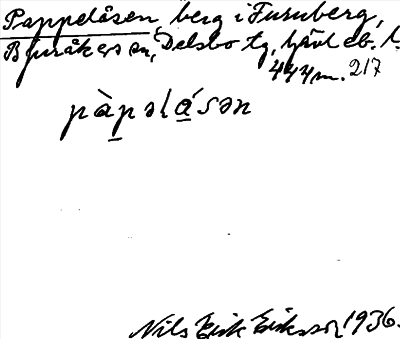 Pappelåsen, berg i Furuberg,
Bjuråkers sn, Delsbo tg, Gävleb. l.
444 m. 217
pàpəlásən
Nils Erik Eriksson 1936.